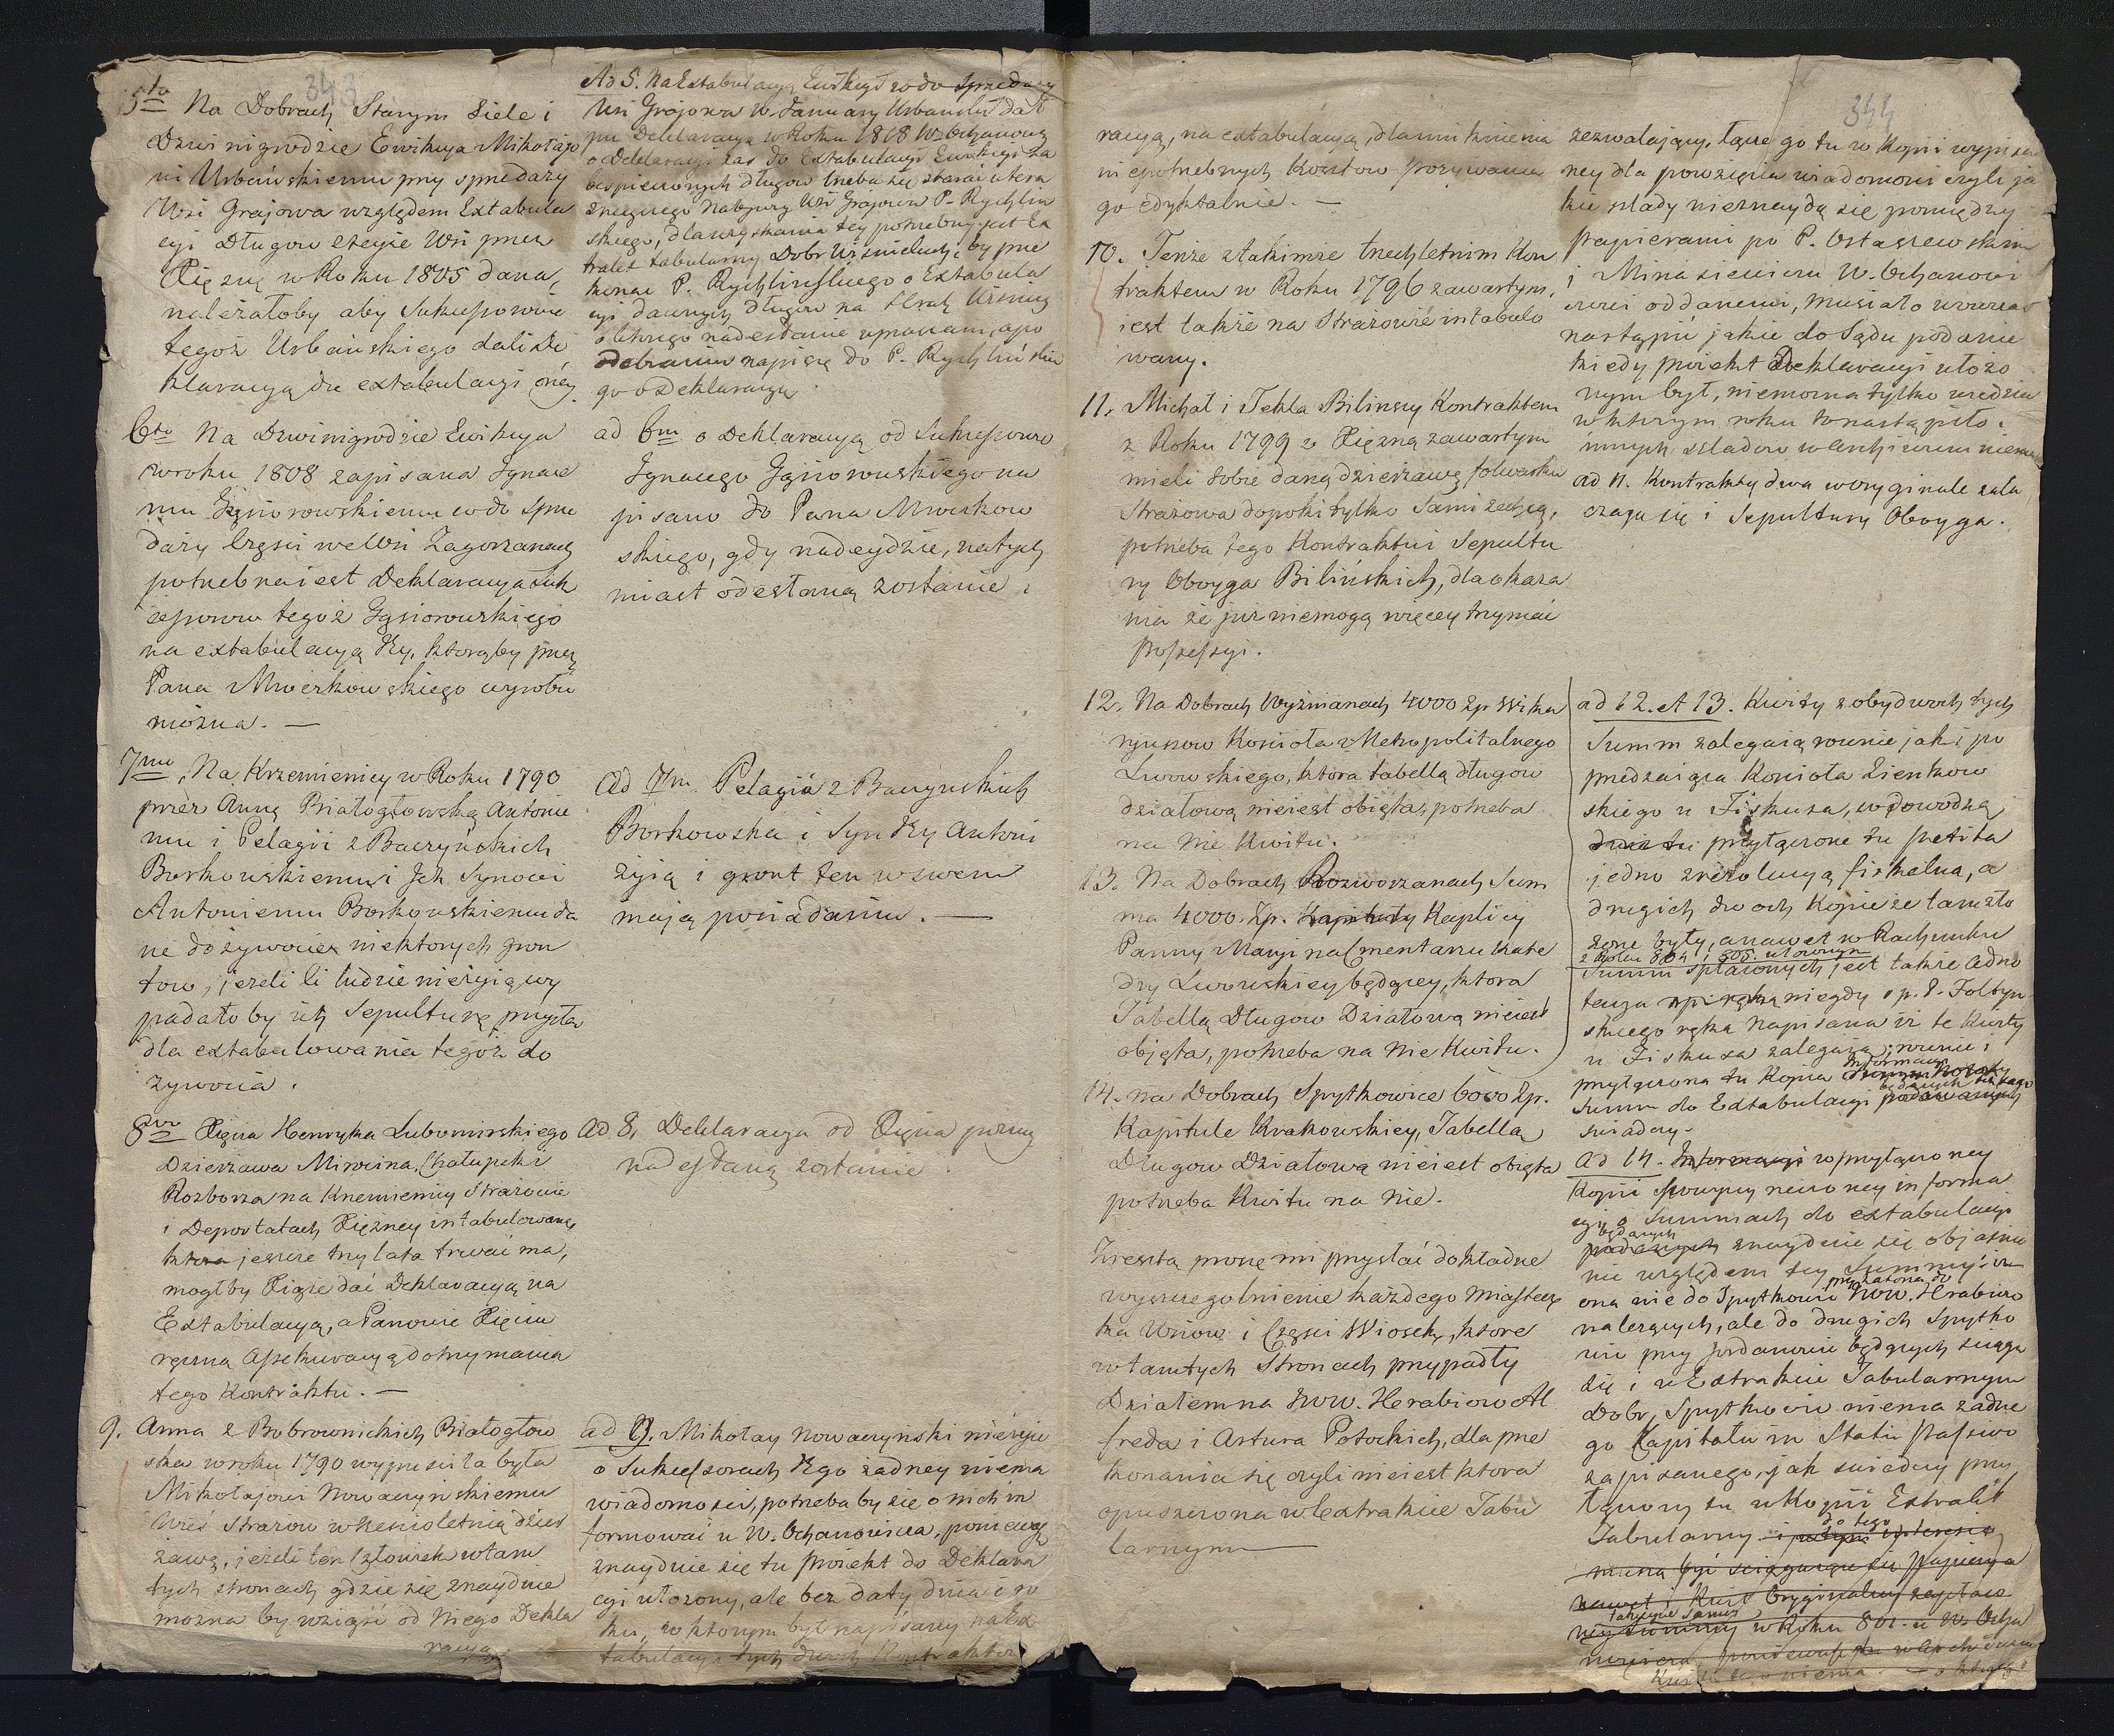 343
5to Na Dobrach Starym Siele i
Dzwinigrodzie Ewikcya Mikołajo
wi Urbańskiemu przy sprzedaży
Wsi Grajowa względem Extabula
cyi Długow szyie Wsi przez
Xiężnę w Roku 1805 dana,
należałoby aby Sukcessorowie
tegoż Urbańskiego dali De
klaracyą do extabulacyi oney.
6to Na Dzwinigrodzie Ewikcya
w roku 1808 zapisana Ignace
mu Gąsiorowskiemu co do sprze
daży Części we Wsi Zagorzanach
potrzebna iest Deklaracya Suk
cessorow tegoż Gąsiorowskiego
na extabulacyą Jey, ktorąby przez
Pana Mworzkowskiego wyrobić
można. —
7mo Na Krzemienicy w Roku 1790
przez Annę Białogłowską Antonie
mu i Pelagii z Baczyńskich
Borkowskiemu i Ich Synowi
Antoniemu Borkowskiemu da
ne dożywocie niektorych grun
tow, jeżeli li ludzie nieżyią wy
padałoby ich Sepulturę przysłać
dla extabulowania tegoż do
żywocia.
8vo Xięcia Henryka Lubomirskiego
Dzierżawa Mirocina, Chałupek i
Rozborza na Krzemienicy Strażowie
i Deportatach Xiężney intabulowana
ktora jeszcze trzy lata trwać ma,
mogłby Xiąże dać Deklaracyą na
Extabulacyą, a Panowie Xięciu
ręczną Assekuracyą dotrzymania
tego Kontraktu. —
9. Anna z Bobrownickich Białogłow
ska w roku 1790 wypuściła była
Mikołajowi Nowaczyńskiemu
Wieś Strażow w sześcioletnią dzier
żawę, jeżeli ten Człowiek w tam
tych stronach gdzie się znayduie
można by wziąść od Niego Dekla
racyą
Ad 5. Na Extabulacyą Ewikcyi co do sprzedaży
Wsi Grajowa W. January Urbański dał
mu Deklaracyą w Roku 1818 W. Ochanowi
o Deklaracyi zaś do Extabulacyi Ewikcyi za
bespieczonych długow trzeba się starać u tera
znieyszego Nabywcy Wsi Grajowa P. Rychlin
skiego, dla uzyskania tey potrzebny jest Ex
trakt tabularny Dobr Wiśniulach, by prze
konać P. Rychlinskiego o Extabula
cyi dawnych długow na Hrab. Wiśnicz
o ktorego nadesłanie upraszam, a po
odebraniu napiszę do P. Rychlińskie
go o Deklaracyą.
ad 6m o Deklaracyą od Sukcessorow
Ignacego Gąsiorowskiego na
pisano do Pana Mworzkow
skiego, gdy nadeydzie, natych
miast odesłaną zostanie.
Ad 7m. Pelagia z Baczyńskich
Borkowska i Syn Jey Antoni
żyią i grunt ten w swem
mają posiadaniu. —
Ad 8. Deklaracya od Xięcia pozniey
nadesłaną zostanie
ad 9. Mikołay Nowaczynski nieżyie
o Sukcessorach Jego żadney niema
wiadomosci, potrzeba by się o nich in
formować u W. Ochanowicza, poniewaz
znayduie się tu proiekt do Deklara
cyi ułożony, ale bez daty dnia i ro
ku, w ktorym był napisany na Ex
tabulacyą tych dwoch Kontraktow
344
racyą, na extabulacyą, dla uniknienia
niepotrzebnych kosztow pozywania
go edyktalnie. —
10. Tenże z takimże trzechletnim Kon
traktem w Roku 1796 zawartym,
iest także na Strażowie intabulo
wany.
11. Michał i Tekla Bilinscy Kontraktem
z Roku 1799 z Xiężną zawartym
mieli sobie daną dzierżawę folwarku
Strażowa dopoki tylko Sami zechcą,
potrzeba tego Kontraktu i Sepultu
ry Oboyga Bilińskich, dla okaza
nia że już niemogą więcey trzymać
Possessyi.
12. Na Dobrach Wyżnianach 4000 Zp Wika
ryuszow Kościoła Metropolitalnego
Lwowskiego, ktora tabellą długow
działową nieiest obięta, potrzeba
na Nie Kwitu.
13. Na Dobrach Rozworzanach Sum
ma 4000. Zp. Kapituły Kaplicy
Panny Maryi na Cmentarzu Kate
dry Lwowskiey będącey, ktora
Tabellą Długow Działową nieiest
objęta, potrzeba na Nie Kwitu.
14. na Dobrach Spytkowice 6000 Zp.
Kapitule Krakowskiey, Tabellą
Długow Działową nieiest obięta
potrzeba Kwitu na Nie.
Zresztą proszę mi przysłać dokładne
wyszczegolnienie każdego Miastecz
ka Wsiow i Części Wiosek, ktore
w tamtych Stronach przypadły
Działem na JWW. Hrabiow Al
freda i Artura Potockich, dla prze
konania się czyli nieiest ktora
opuszczona w Extrakcie Tabu
larnym
zezwalający, łączę go tu w Kopii wypisa
ney dla powzięcia wiadomosci czyli ja
kie slady nieznaydą się pomiędzy
papierami po P. Ostaszewskim
i Minasiewiczu W. Ochanowi
czowi oddanemi, musiało wowczas
nastąpić jakie do Sądu podanie
kiedy proiekt Deklaracyi ułożo
nym był, niemozna tylko wiedzieć
w ktorym roku to nastąpiło.
innych sladow w Archiwum niema
ad 11. Kontrakty dwa w oryginale zała
czaią się i Sepultury Oboyga.
ad 12. et 13. Kwity z obydwoch tych
Summ zalegaią rownie jak i po
przedzaiąca Kosciola Zienkow
skiego u Fiskusa, w dowodzą
przyłączone tu petita
jedno z rezolucyą fiskalna, a
drugich dwoch Kopie ze tam zło
żone były, a nawet w Rachunku
z Roku 804 i 805. ułożonym
Summ spłaconych jest także adno
tacya niegdy s.p. P. Foltyn
skiego ręką napisana iż te Kwity
u Fiskusa zalegaią, rownie i
przyłączona tu Kopia Informacyi
będących
Summ do Extabulacyi podawanych
swiadczy.
Ad 14. Informacyi w przyłączoney
Kopii powyzey rzeczoney informa
cyi o Summach do extabulacyi
będących
podanych znayduie się objaśnie
nie względem tey Summy: iż
ona nie do Spytkowic JWW. Hrabiow
należących, ale do drugich Spytko
wic przy Jordanowie będących sciąga
się i w Extrakcie Tabularnym
Dobr Spytkowic niema żadne
go Kapitału in Statu Passivo
zapisanego, jak swiadczy przy
łączony tu w Kopii Extrakt
Tabularny
do tego
w Roku 801. u W. Ocha